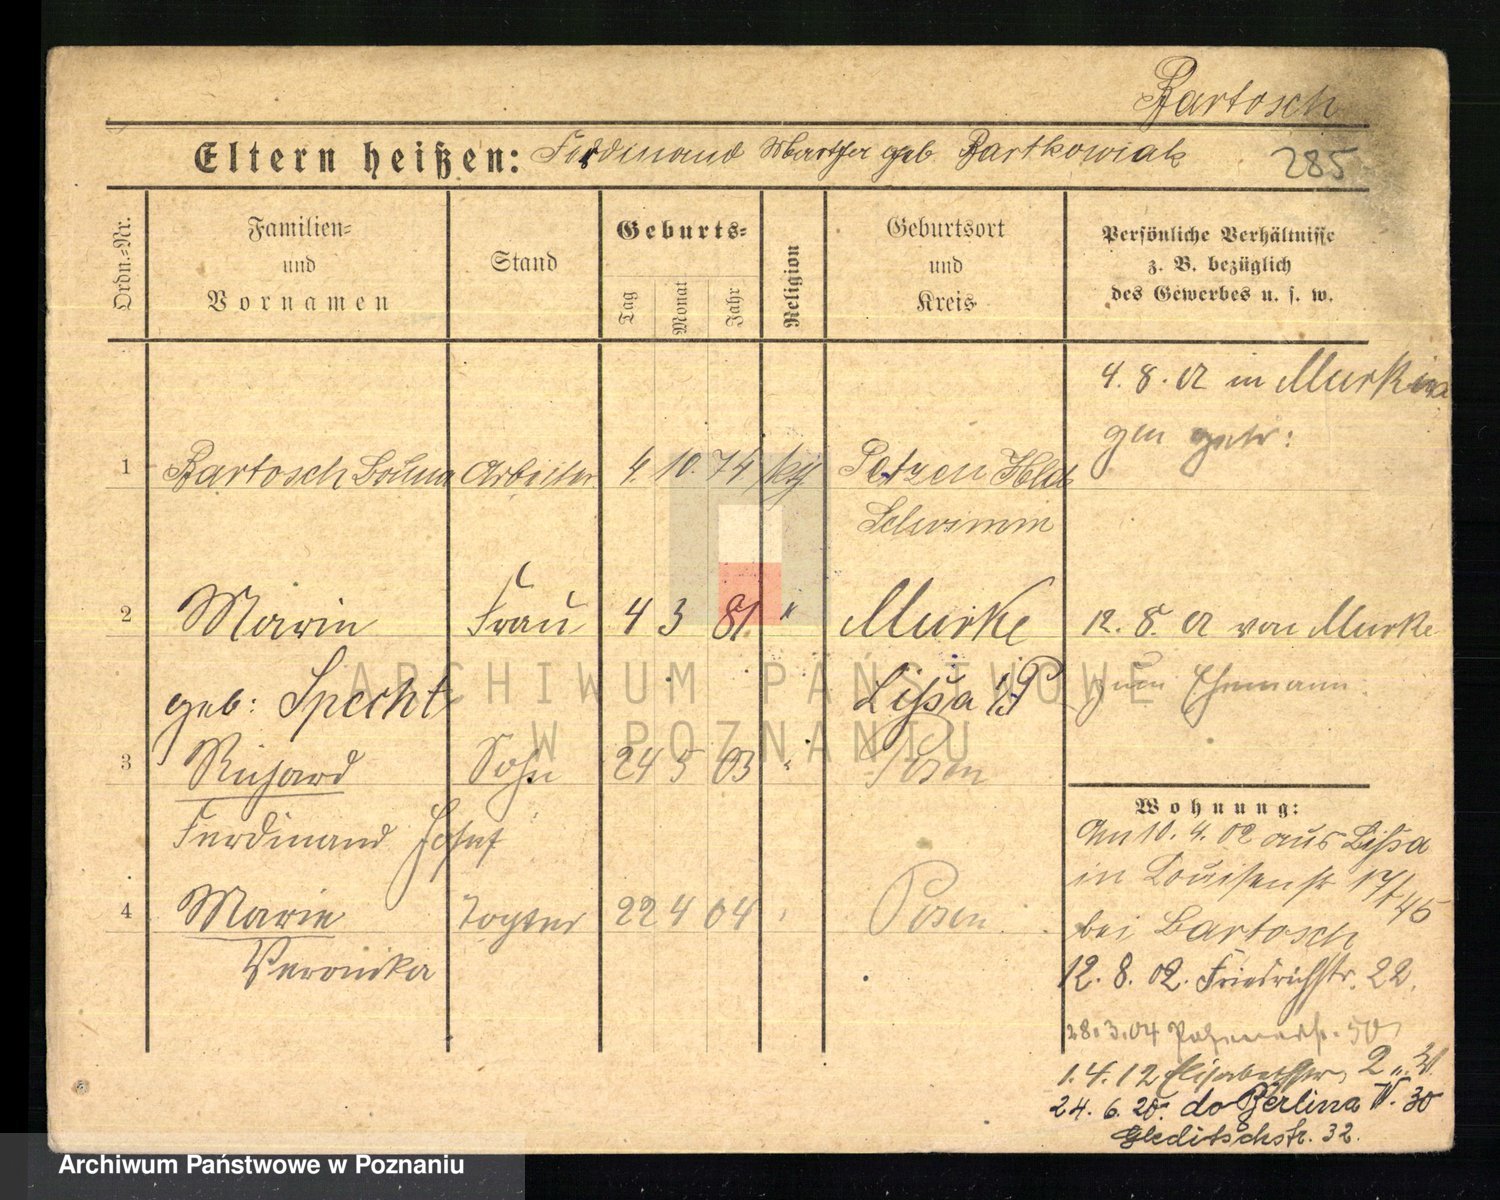 Bartosch
Eltern heißen: Ferdinand Martha geb. Bartkowiak 285
Ordn.-Nr.
Familien- und Vornamen
Stand
Geburts-
Tag Monat Jahr
Religion
Geburtsort und Kreis
Persönliche Verhältnisse z. B. bezüglich des Gewerbes u. s. w.
4. 8. 02 in
1 Bartosch Arbeiter 4. 10. 74 kth
Schrimm
2 Marie Frau 4 3 81 " Murke
12. 8. 02 von Murke
zum Ehemann.
geb: Specht Lissa i/P
3 Richard Sohn 24 5 03 " Posen
Ferdinand Josef
4 Marie Tochter 22 4 04 Posen
Veronika
Wohnung:
Am 10. 4. 02 aus Lissa
in Louisenstr 17/
bei Bartosch
12. 8. 02. Friedrichstr. 22.
28. 3. 04 50
1. 4. 12 Elisabethstr. 2
24. 6. 20. do Berlina W. 30
Gleditschstr. 32.
ARCHIWUM PAŃSTWOWE
W POZNANIU
Archiwum Państwowe w Poznaniu